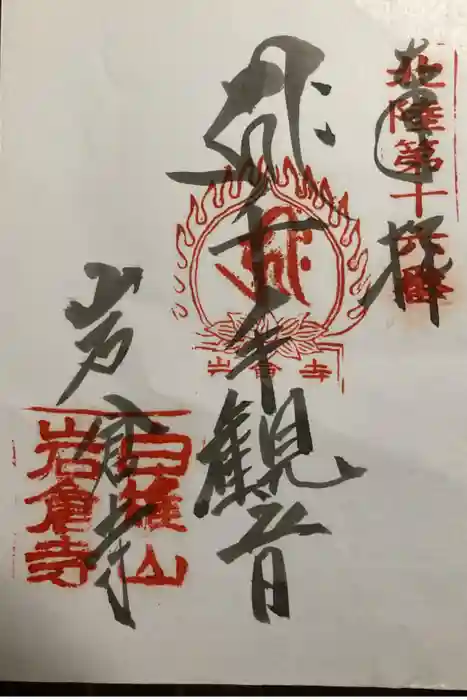 奉拝
北陸第十六番
千手観音
岩倉寺
岩倉寺
白雉山
岩倉寺